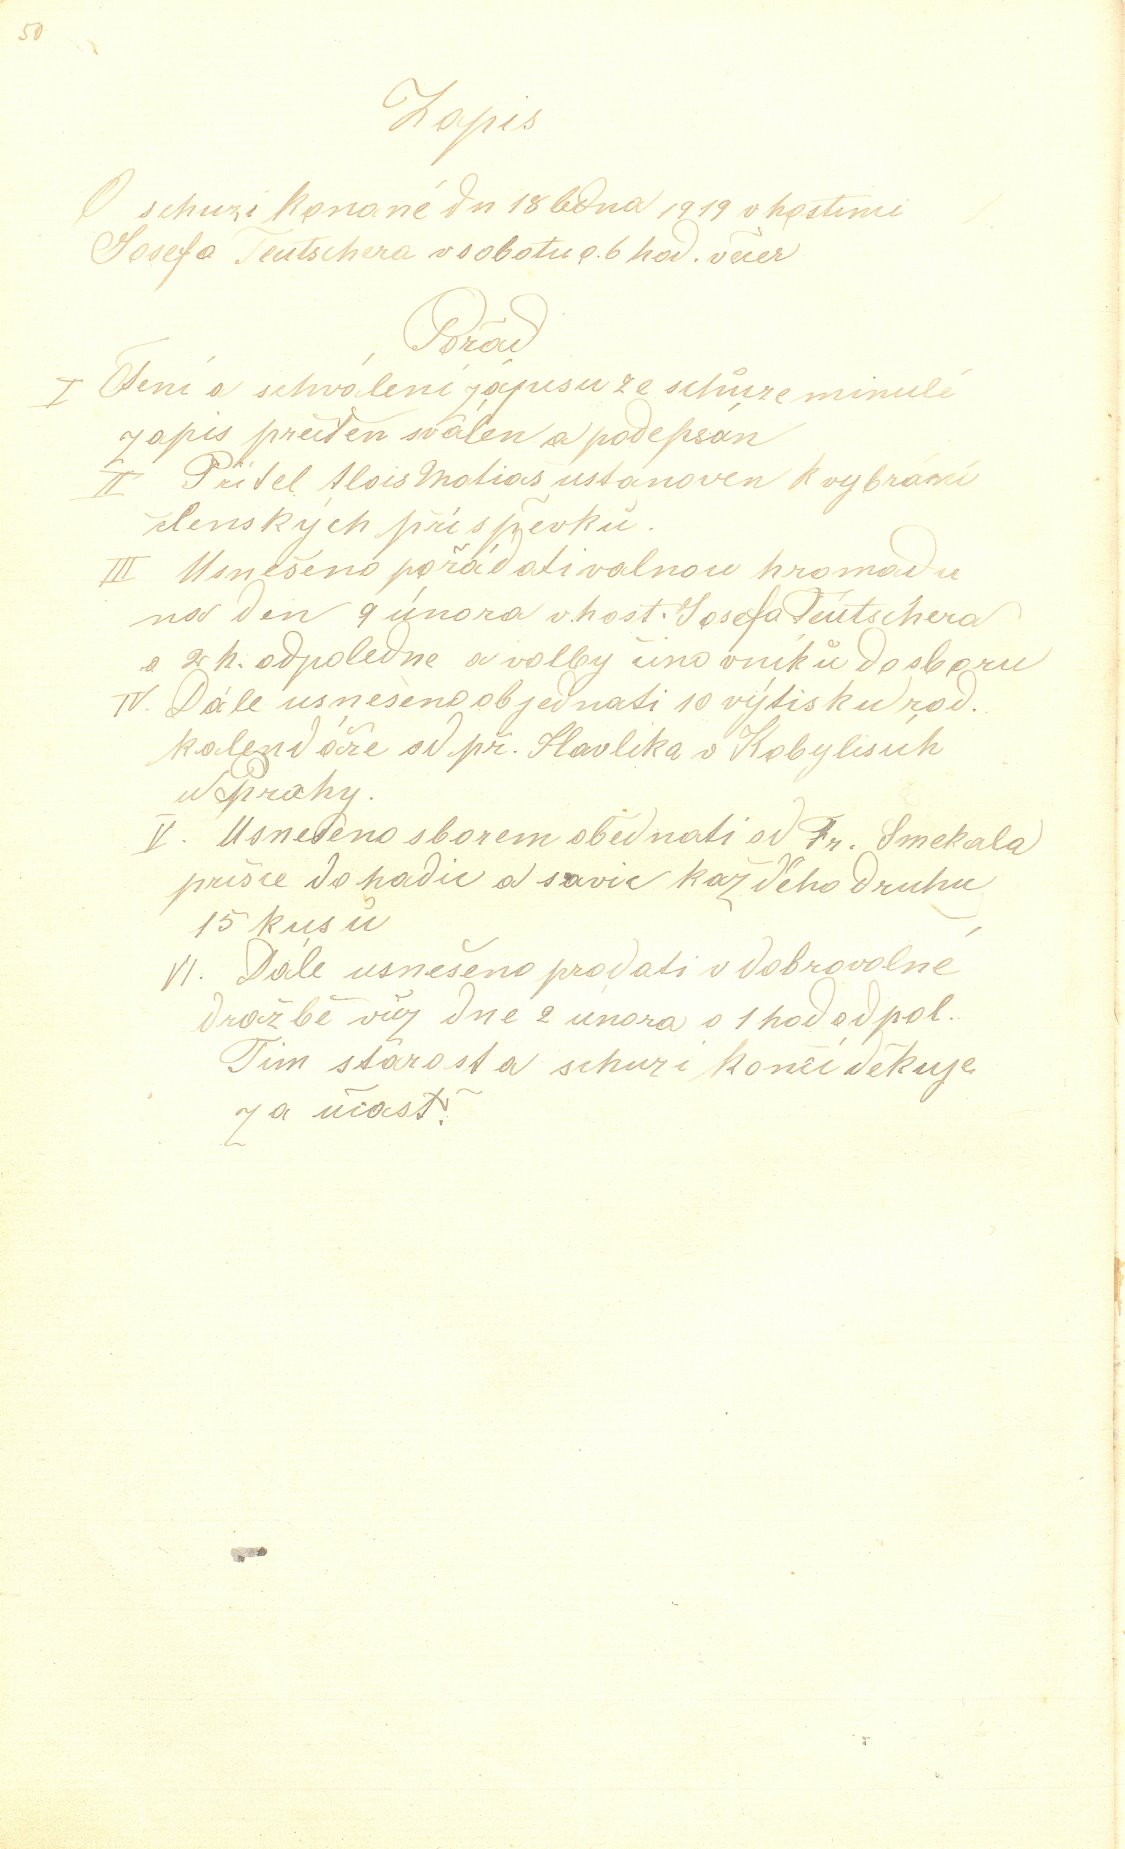 50
Zapis
O schuzi konané dn 18 ledna 1919 v hostinci
Josefa Teutschera v sobotu o. 6 hod. večer
Pořad
I Čtení a schválení zápisu ze schůze minulé
zapis přečten sválen a podepsán
II Přítel Alois Matias ustanoven k vybrání
členských příspěvků.
III Usnešeno pořádati valnou hromadu
na den 9 února v host. Josefa Teutschera
o 2 h. odpoledne a volby činovníků do sboru
IV. Dále usnešeno objednati 10 výtisku rod.
kalendáře od př. Havlika v Kobylisich
u Prahy.
V. Usnešeno sborem obědnati od Fr. Smekala
prišce do hadic a savic každého druhu
15 kusů
VI. Dále usnešeno prodati v dobrovolné
dražbě vůz dne 2 unora o 1 hod odpol.
Tim starosta schuzi končí děkuje
za učast.